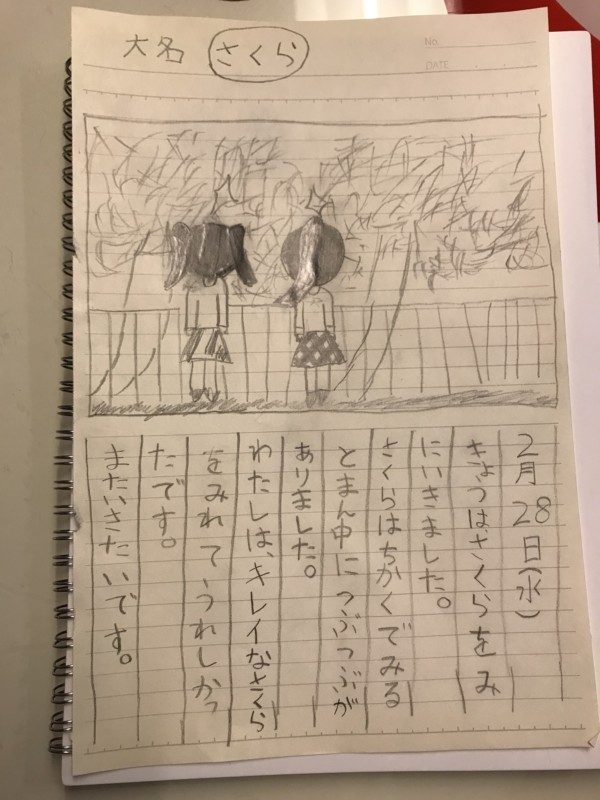 大名 さくら
No.
DATE
2月28日(水)
きょうはさくらをみ
にいきました。
さくらはちかくでみる
とまん中につぶつぶが
ありました。
わたしは、キレイなさくら
をみれて、うれしかっ
たです。
またいきたいです。